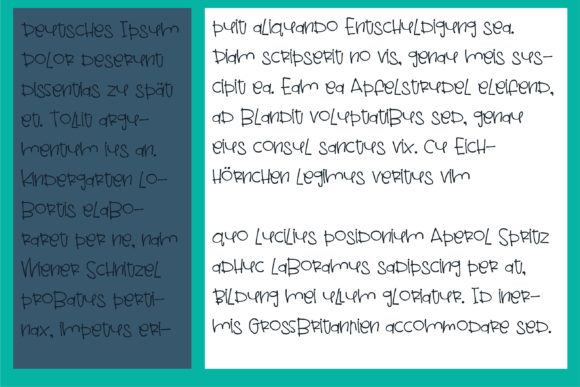 Deutsches Ipsum
Dolor deserunt
dissentias zu spät
et. Tollit argu-
mentum ius an.
Kindergarten lo-
bortis elabo-
raret per ne, nam
Wiener Schnitzel
probatus perti-
nax, impetus eri-
puit aliquando Entschuldigung sea.
Diam scripserit no vis, genau meis sus-
cipit ea. Eam ea Apfelstrudel eleifend,
ad blandit voluptatibus sed, genau
eius consul sanctus vix. Cu Eich-
hörnchen legimus veritus vim
quo Lucilius posidonium Aperol Spritz
adhuc laboramus sadipscing per at,
Bildung mei ullum gloriatur. Id iner-
mis Grossbritannien accommodare sed.